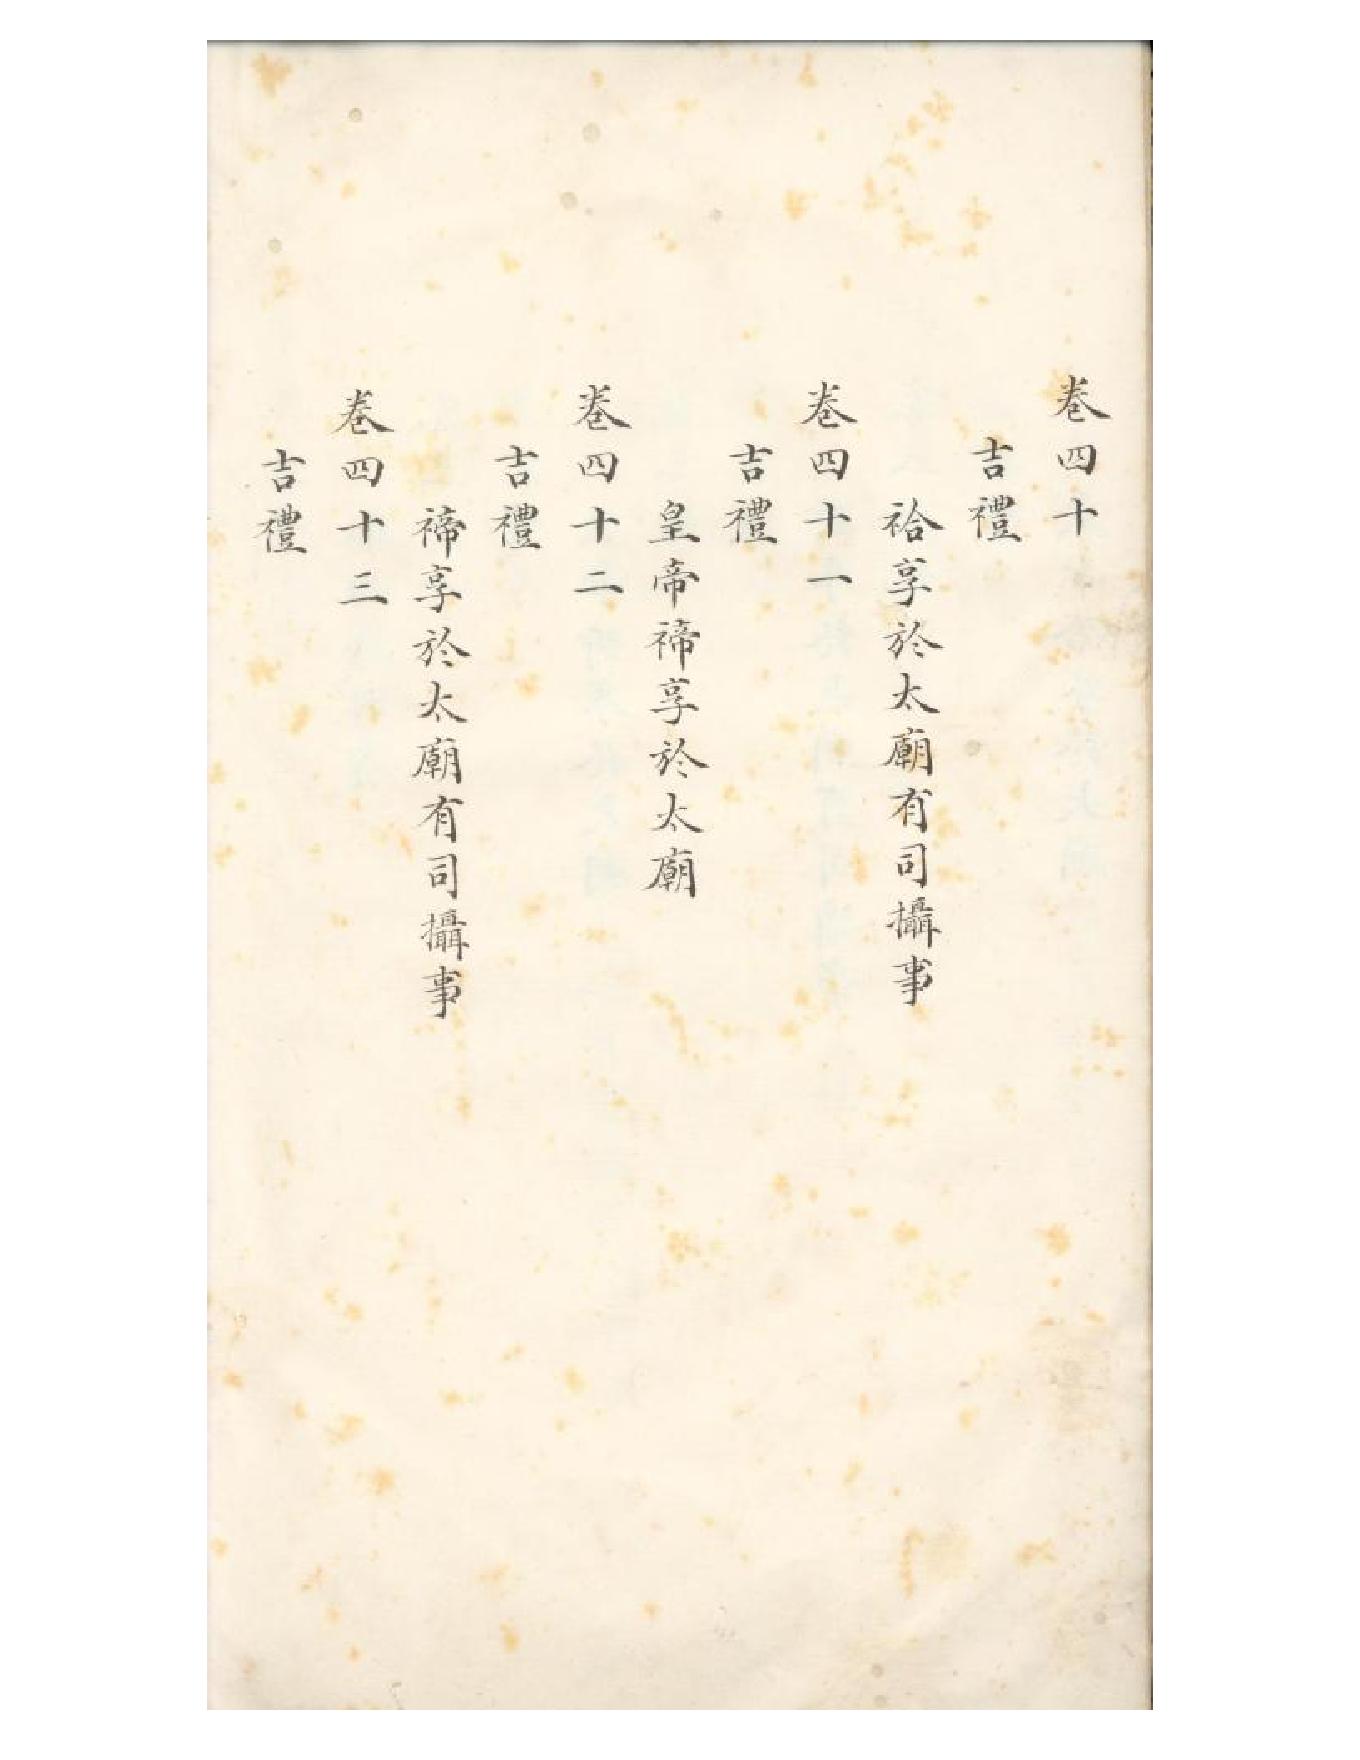 卷四十
吉禮
祫享於太廟有司攝事
卷四十一
吉禮
皇帝禘享於太廟
卷四十二
吉禮
禘享於太廟有司攝事
卷四十三
吉禮